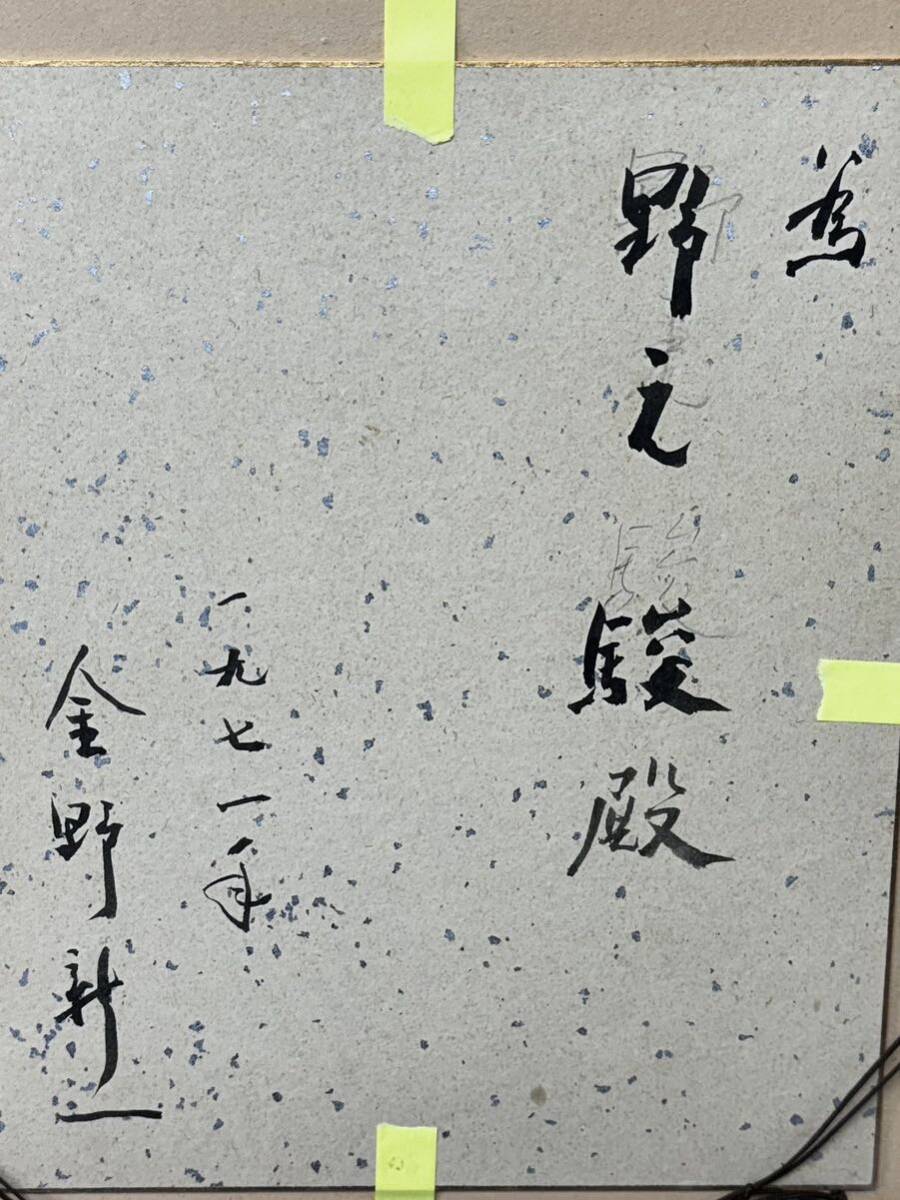 為
野元駿殿
一九七一年
金野新一